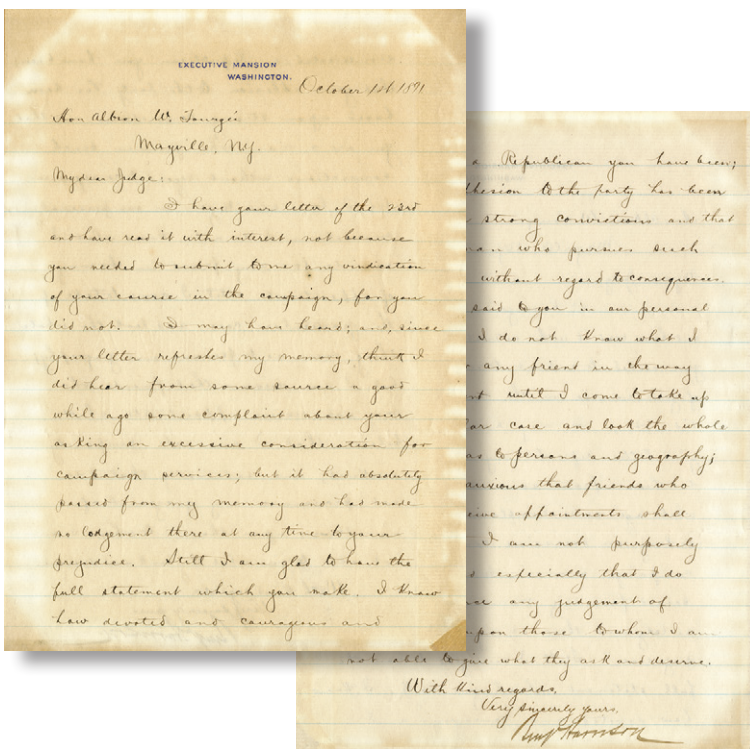 EXECUTIVE MANSION
WASHINGTON.
October 1st 1891
Hon Albion W. Tourgée
Mayville, NY.
My dear Judge:
I have your letter of the 23rd
and have read it with interest, not because
you needed to submit to me any vindication
of your course in the campaign, for you
did not. I may have heard; and, since
your letter refreshes my memory, think I
did hear from some source a good
while ago some complaint about your
asking an excessive consideration for
campaign services; but it had absolutely
passed from my memory and had made
no lodgement there at any time to your
prejudice. Still I am glad to have the
full statement which you make. I know
how devoted and courageous and
a Republican you have been;
to the party has been
strong convictions and that
who pursues such
without regard to consequences.
said to you in our personal
I do not know what I
any friend in the way
until I come to take up
case and look the whole
as to persons and geography;
anxious that friends who
appointments shall
I am not purposely
especially that I do
any judgement of
upon those to whom I am
not able to give what they ask and deserve.
With kind regards,
Very sincerely yours,
Benj Harrison